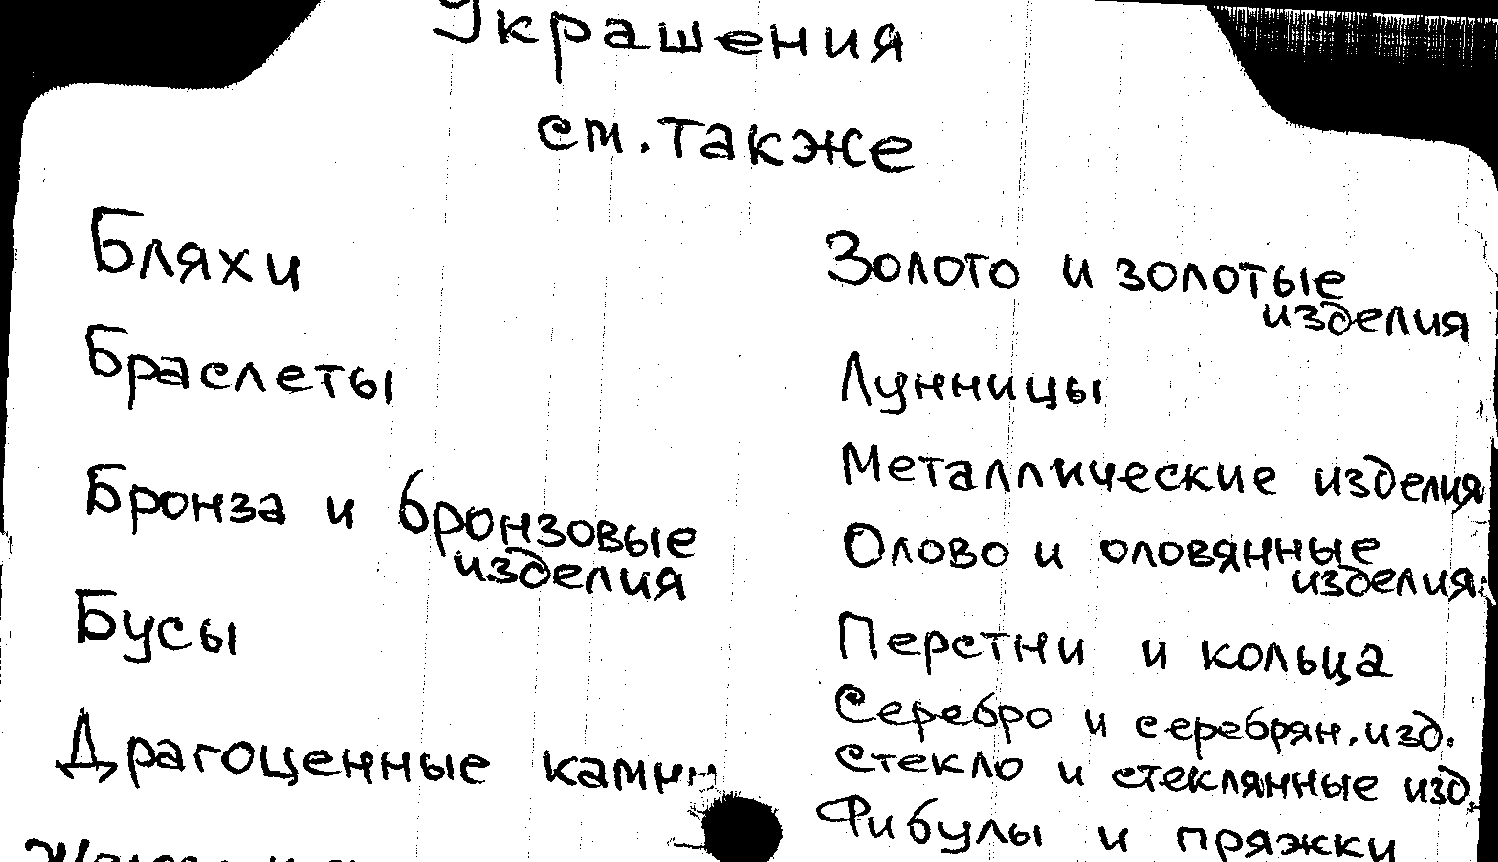 Украшения
см. также
Бляхи
Браслеты
Бронза и бронзовые
изделия
Бусы
Драгоценные камни
Золото и золотые
изделия
Лунницы
Металлические изделия
Олово и оловянные
изделия
Перстни и кольца
Серебро и серебрян. изд.
стекло и стеклянные изд.
Фибулы и пряжки